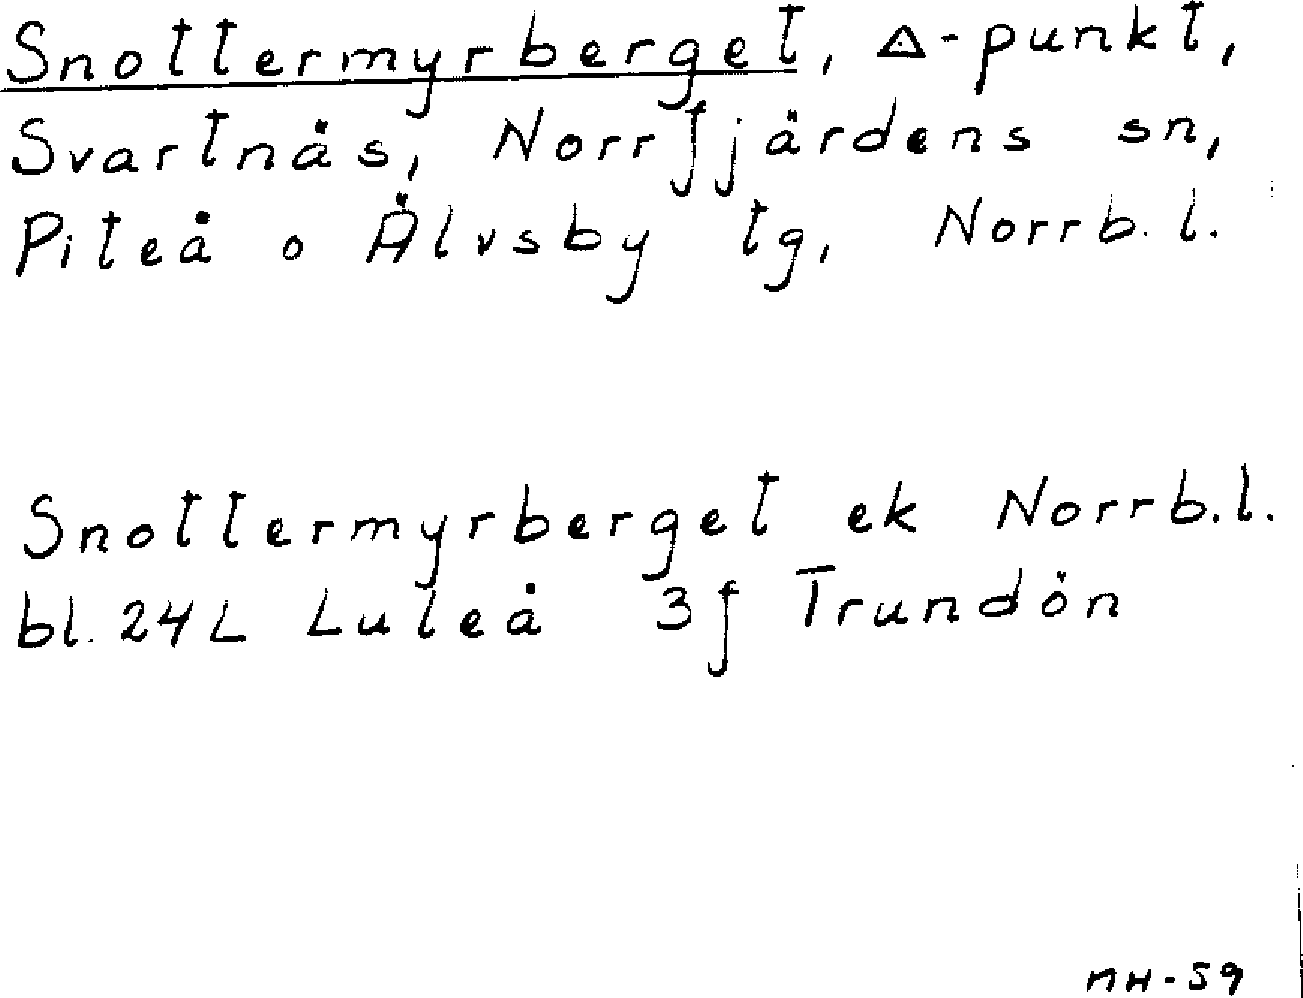 Snottermyrberget, △-punkt,
Svartnäs, Norrfjärdens sn,
Piteå o Älvsby tg, Norrb. l.
Snottermyrberget ek Norrb.l.
bl. 24L Luleå 3f Trundön
MH-59